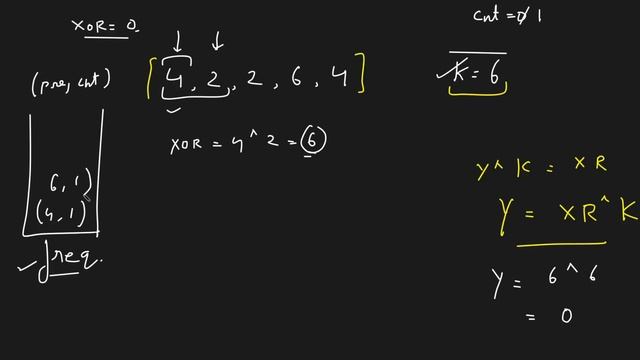 XOR = 0
cnt = 0 1
(pre, cnt)
[4, 2, 2, 6, 4]
K = 6
XOR = 4 ^ 2 = 6
6, 1)
(4, 1)
freq.
Y ^ K = XR
Y = XR ^ K
Y = 6 ^ 6
= 0